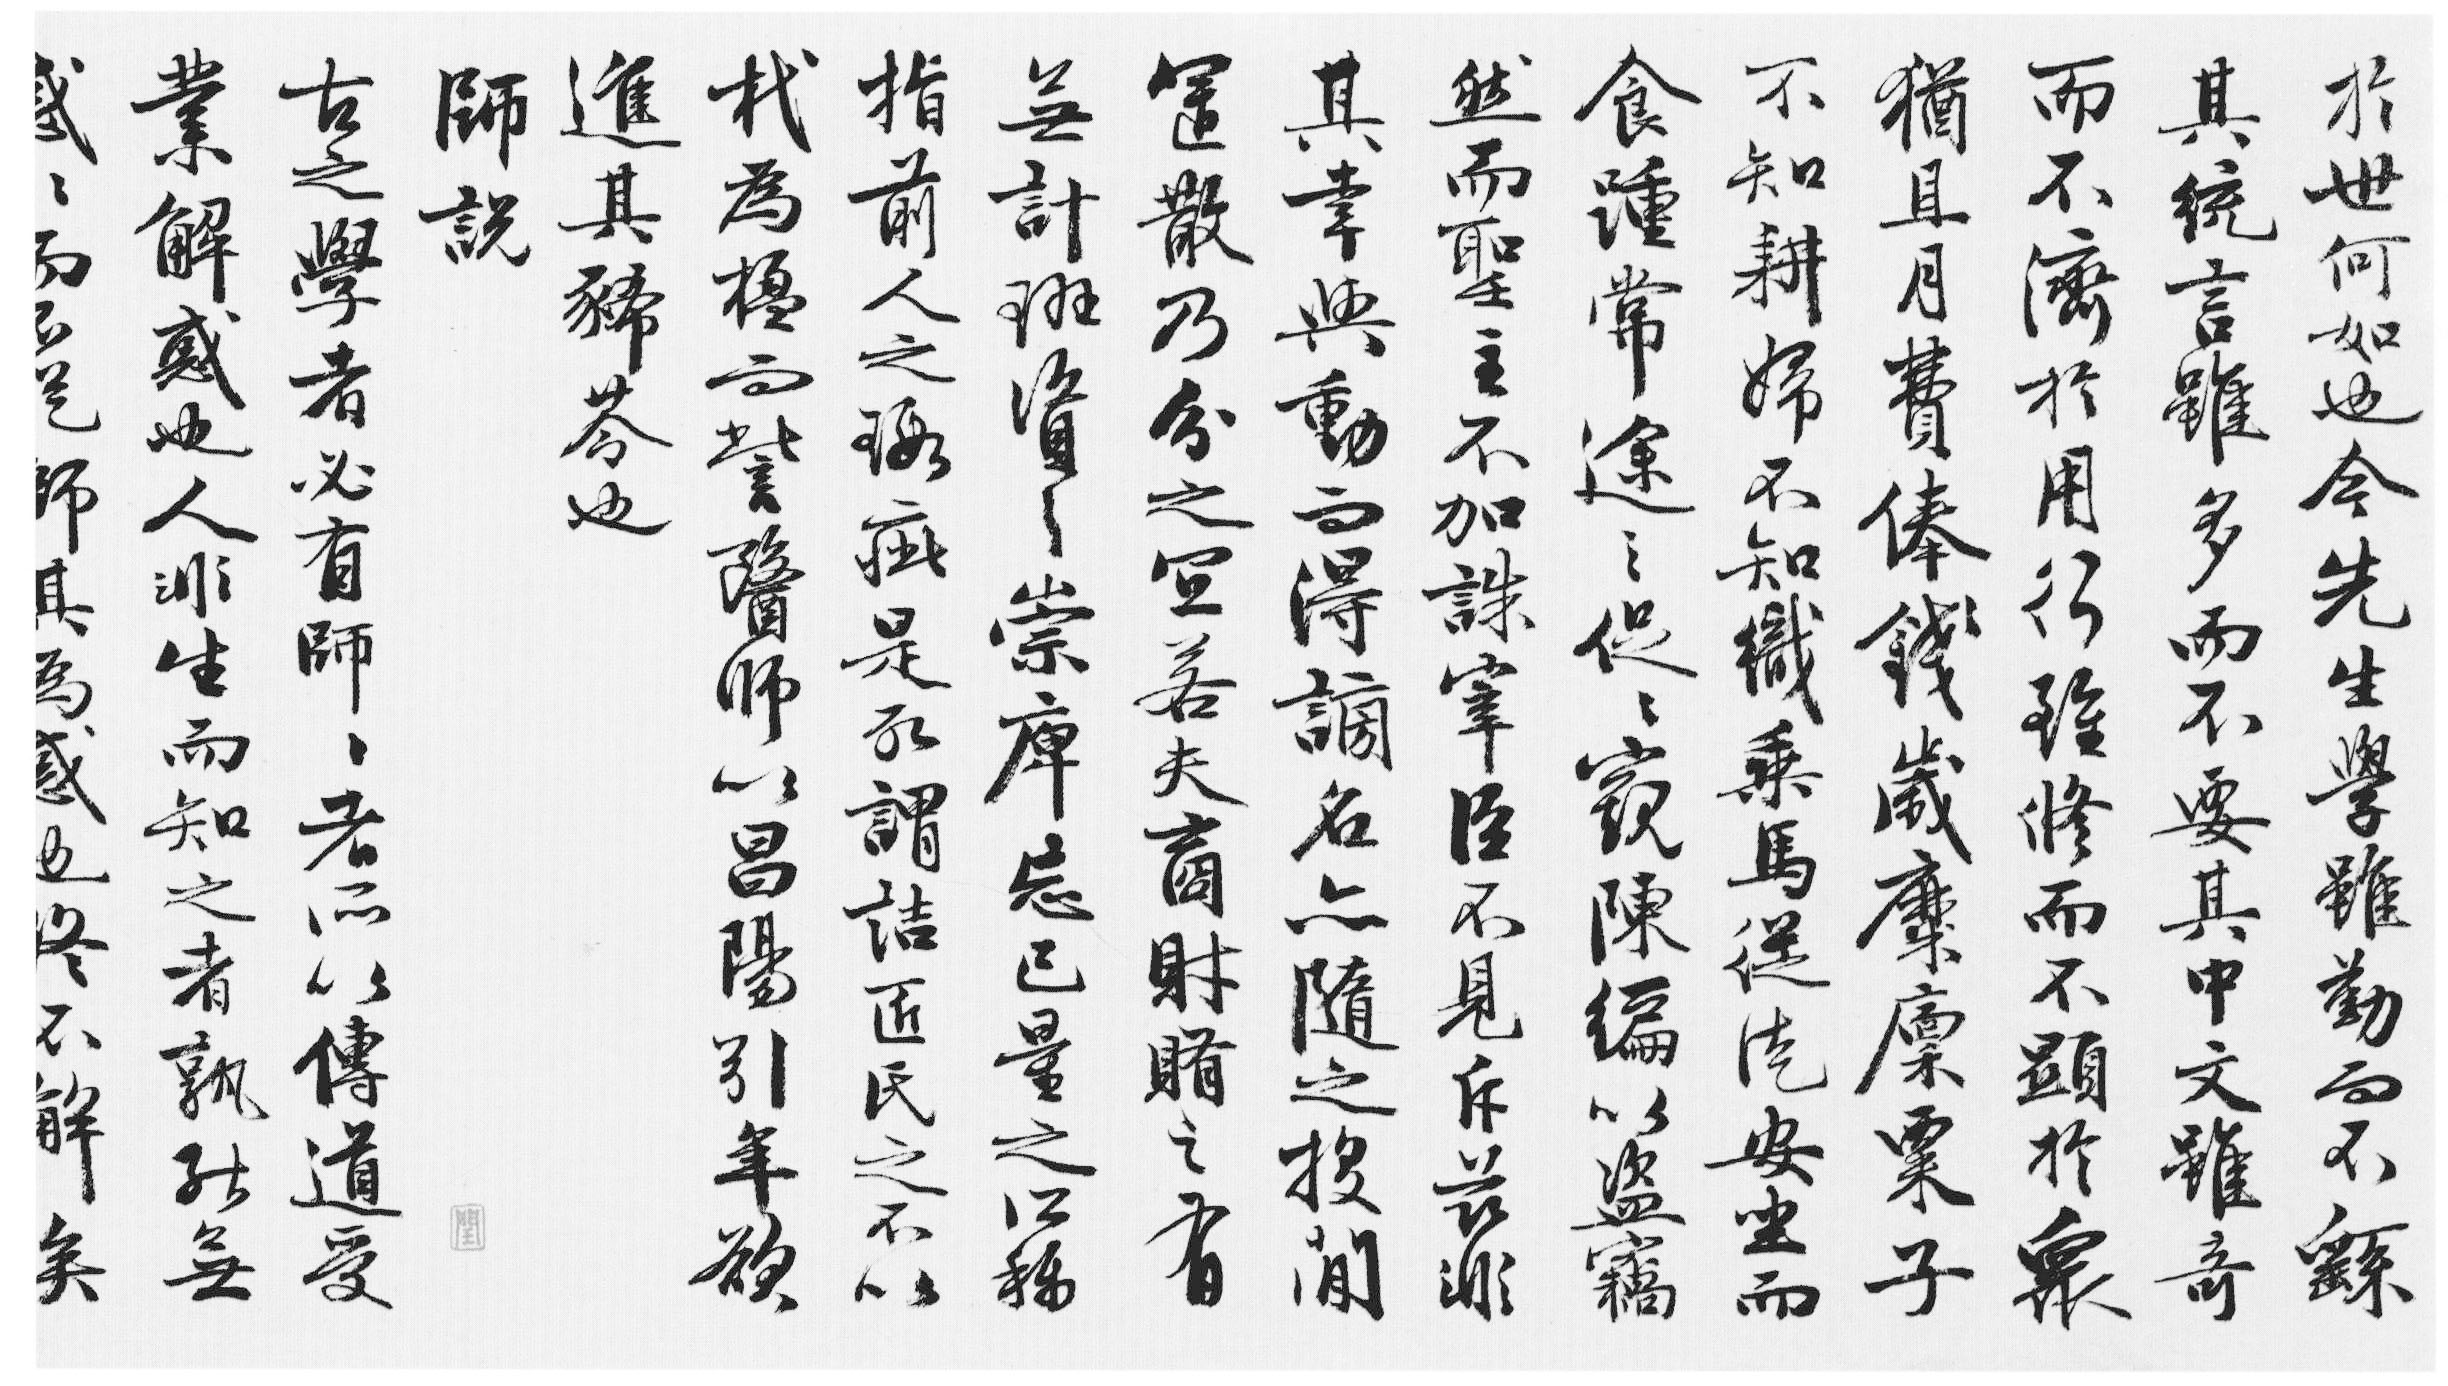 於世何如也今先生學雖勤而不繇
其統言雖多而不要其中文雖奇
而不濟於用行雖修而不顯於衆
猶且月費俸錢歲糜廩粟子
不知耕婦不知織乘馬從徒安坐而
食踵常途之促々窺陳編以盜竊
然而聖主不加誅宰臣不見斥茲非
其幸與動而得謗名亦隨之投閒
置散乃分之宜若夫商財賄之有
無計班資之崇庳忘己量之所稱
指前人之瑕疵是所謂詰匠氏之不以
杙為楹而訾醫師以昌陽引年欲
進其豨苓也
師說
古之學者必有師々者所以傳道受
業解惑也人非生而知之者孰能無
惑々而不從師其為惑也終不解矣